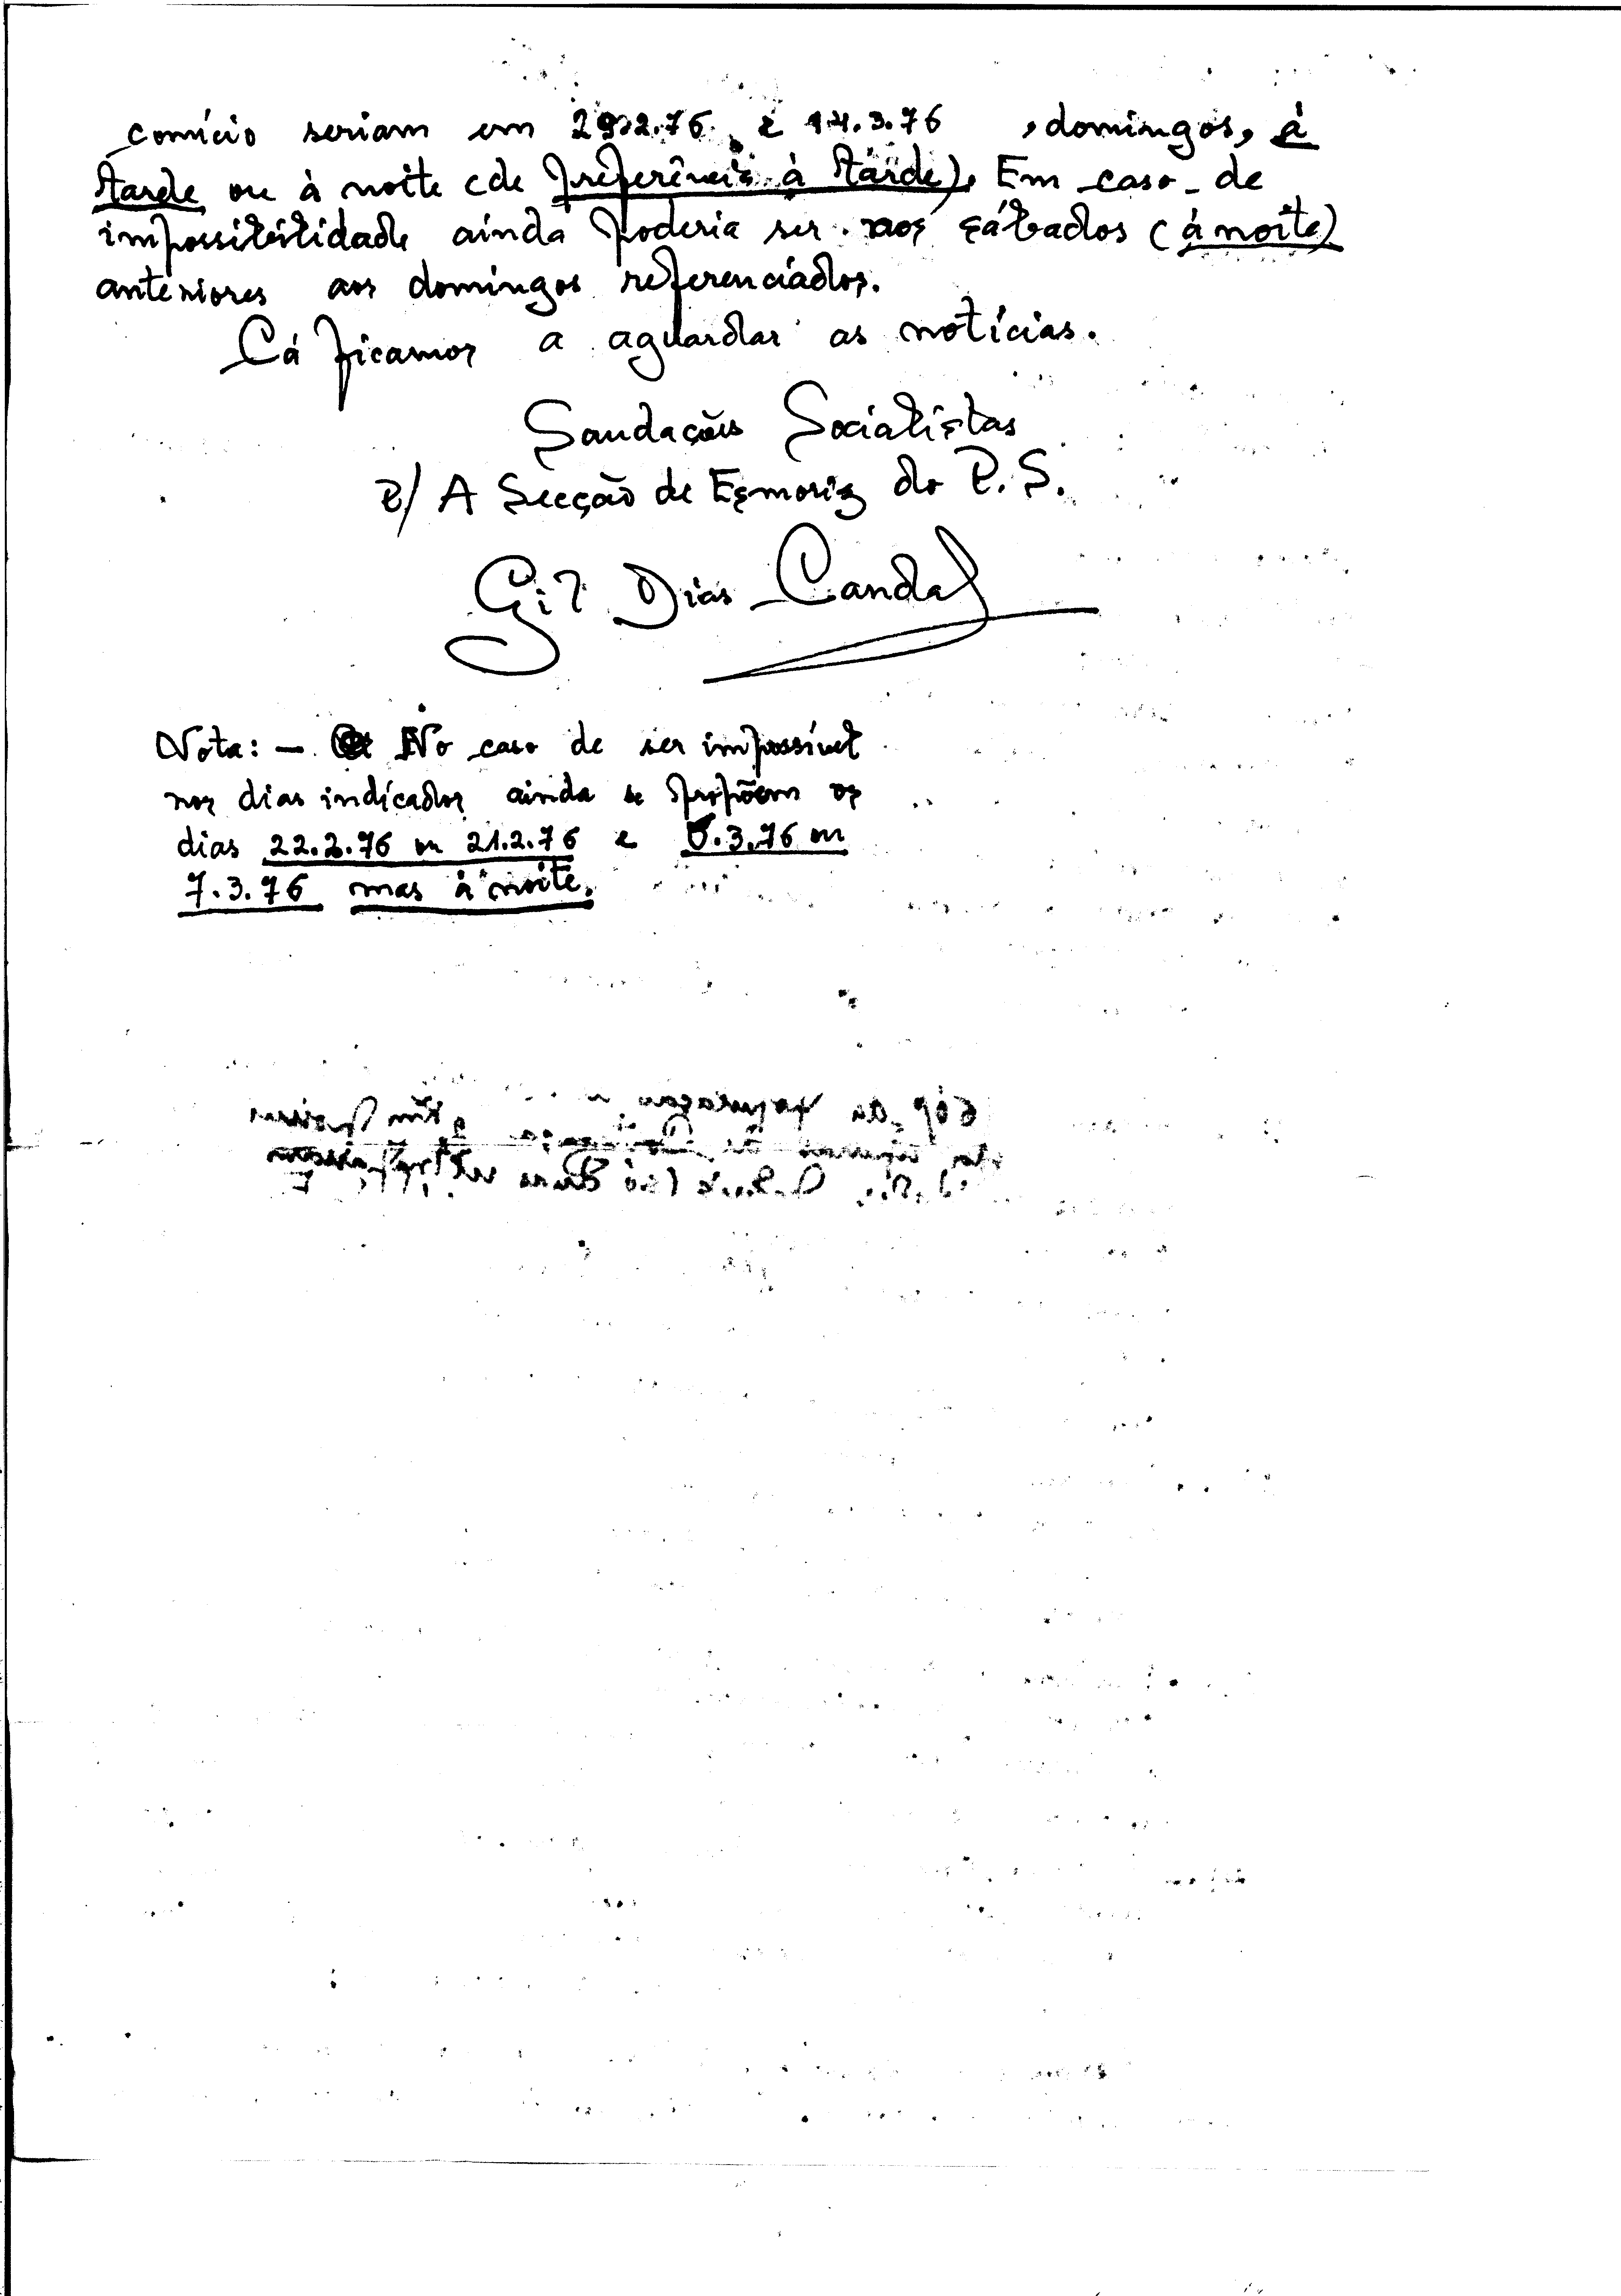 comício seriam em 29.2.76 e 14.3.76 , domingos, à
tarde ou à noite (de preferência à tarde). Em caso de
impossibilidade ainda poderia ser aos sábados (à noite)
anteriores aos domingos referenciados.
Cá ficamos a aguardar as notícias.
Saudações Socialistas
P/ A Secção de Esmoriz do P.S.
Gil Dias Candal
Nota: — No caso de ser impossível
nos dias indicados ainda se propõem os
dias 22.2.76 ou 21.2.76 e .3.76 ou
7.3.76 mas à noite.